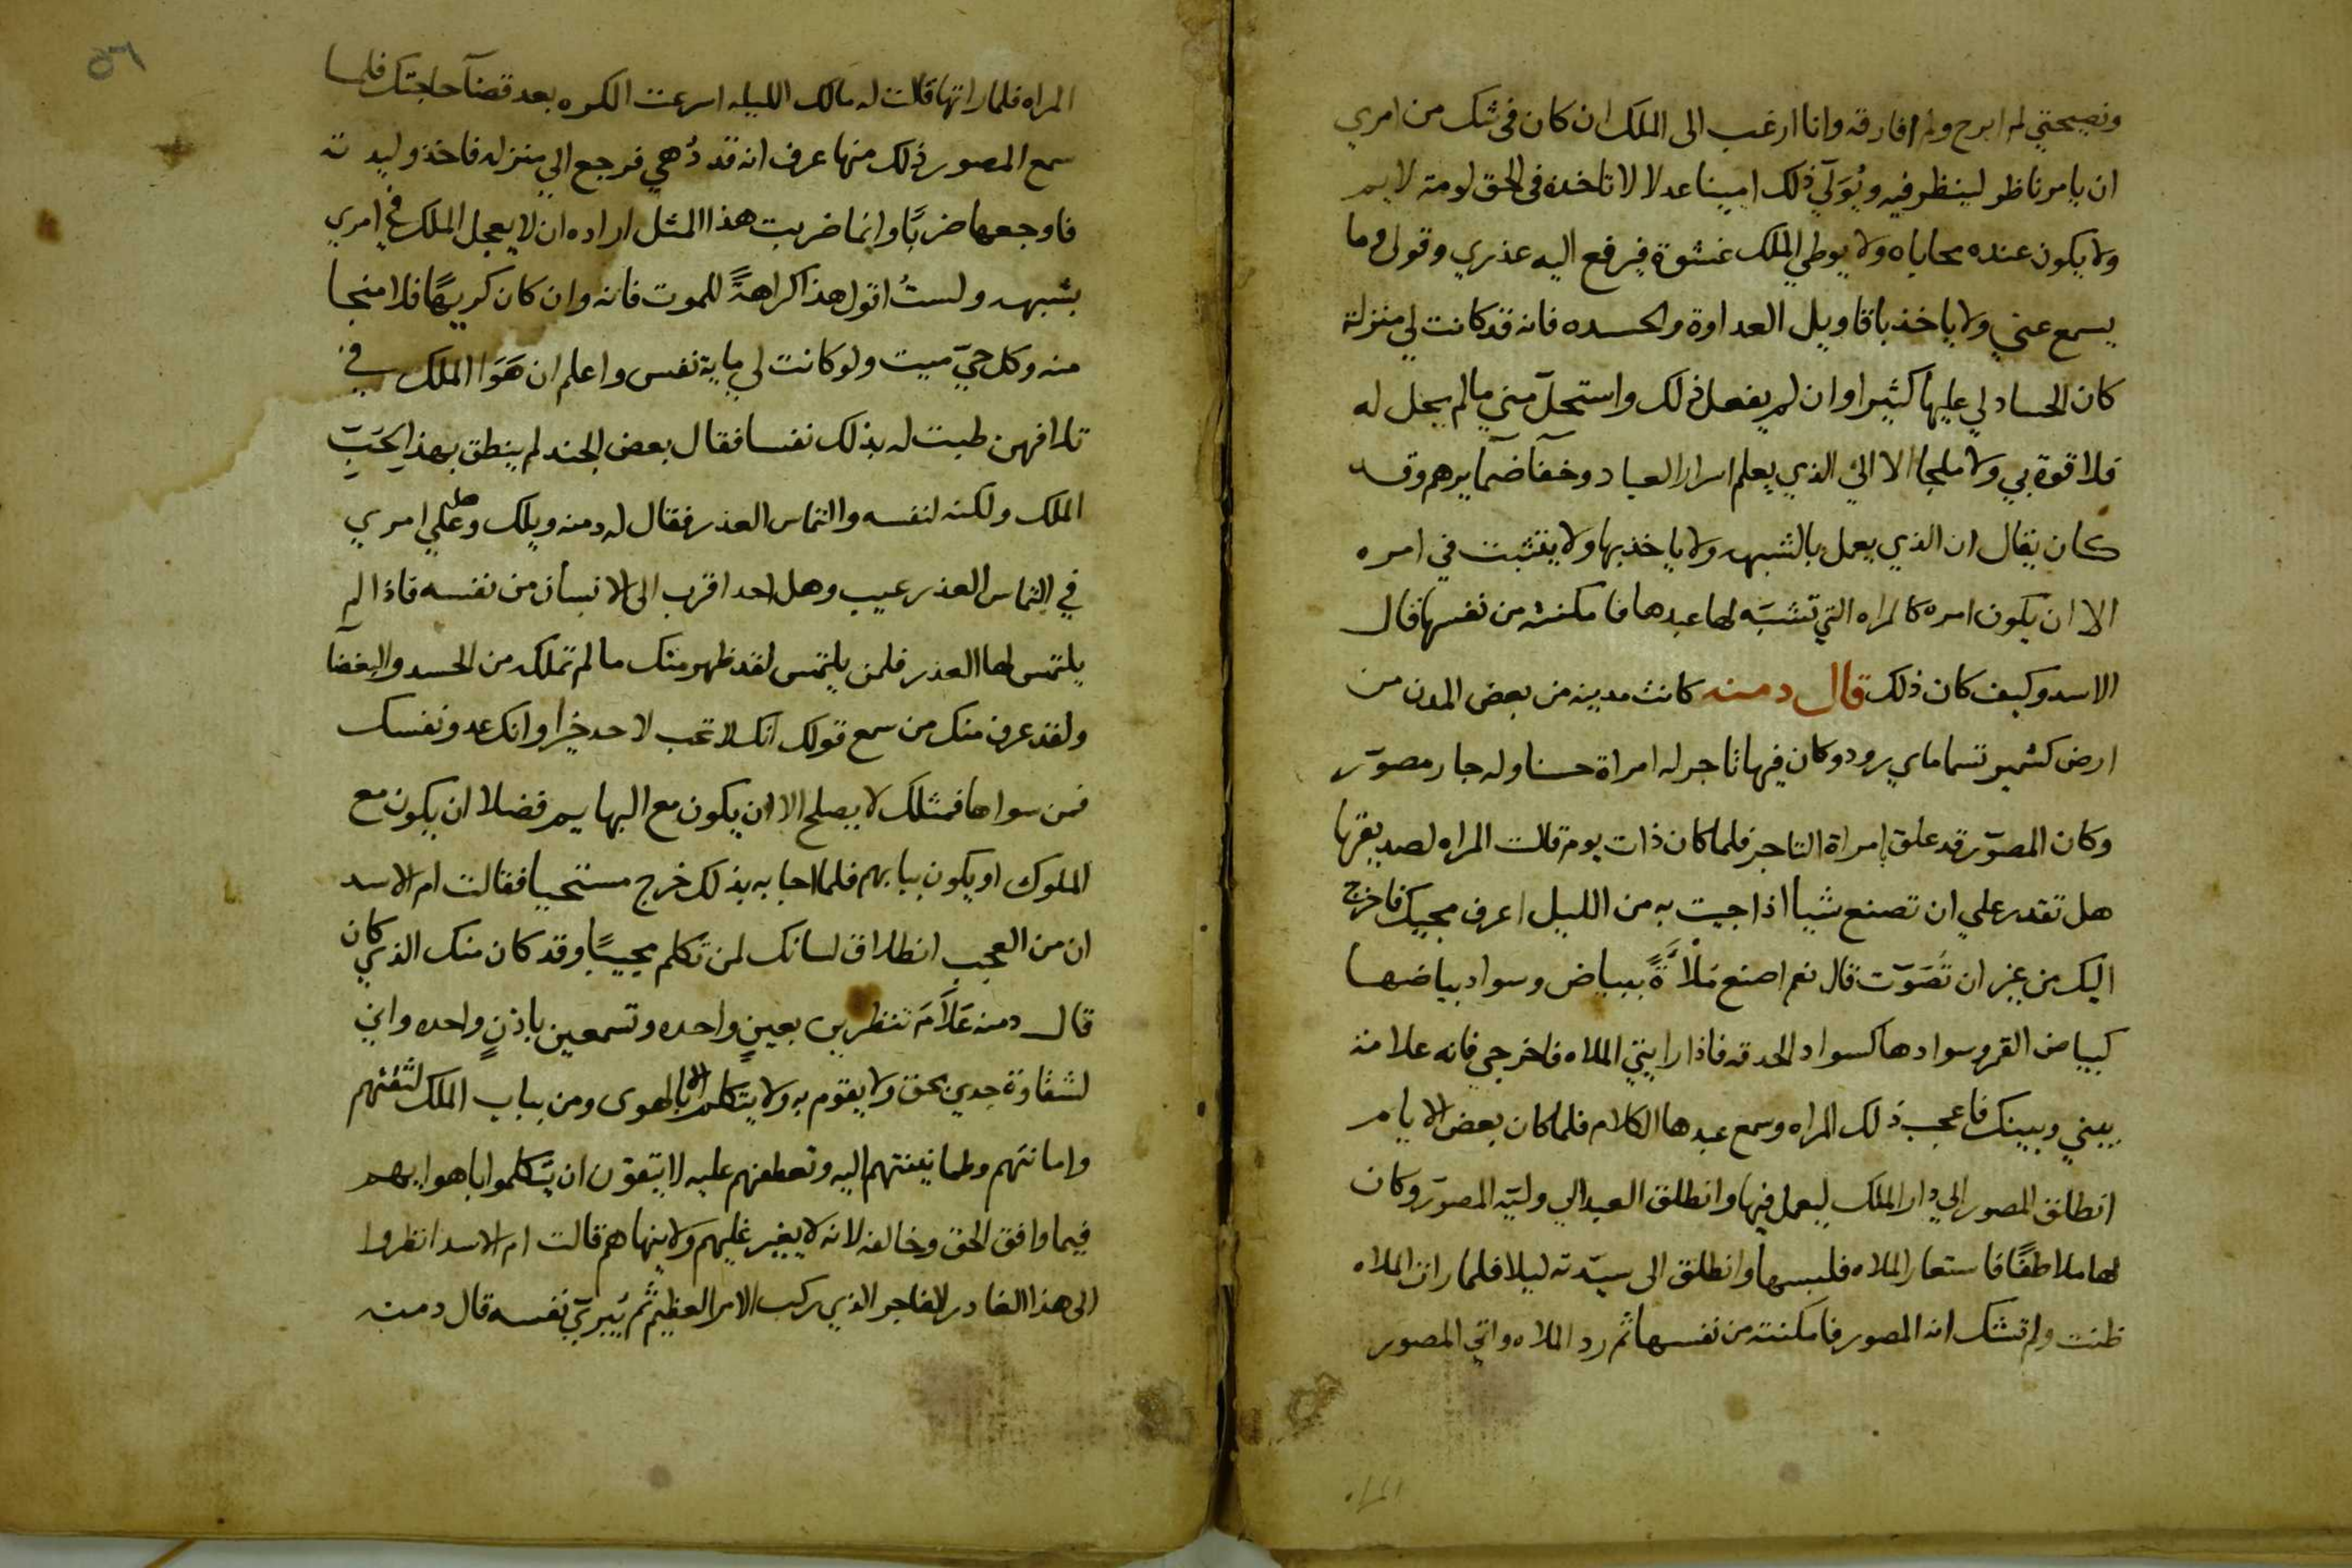 ونصيحتي لم ابرح ولم افارقه وانا ارغب الى الملك ان كان في شك من امري
ان يامر ناظر لينظر فيه ويُوَلّي ذلك امينا عدلا لا تاخذه في الحق لومة لايم
ولا يكون عنده محاباه ولا يوطي الملك عشوة فيرفع اليه عذري وقولي وما
يسمع عني ولا ياخذ باقاويل العداوة والحسده فانه قد كانت لي منزلة
كان الحساد لي عليها كثيرا وان لم يفعل ذلك واستحلّ مني ما لم يحل له
فلا قوة بي ولا ملجا الا الي الذي يعلم اسرار العباد وخفآ ضمآيرهم وقد
كان يقال ان الذي يعمل بالشبهه ولا ياخذ بها ولا يتثبت في امره
الا ان يكون امره كالمراه التي تشبّه لها عبدها فامكنته من نفسها قال
الاسد وكيف كان ذلك قال دمنه كانت مدينه من بعض المدن من
ارض كشمير تسما ماي رود وكان فيها تاجر له امراة حسنا وله جار مصوّر
وكان المصوّر قد علق بامراة التاجر فلما كان ذات يوم قالت المراه لصديقها
هل تقدر علي ان تصنع شيا اذا جيت به من الليل اعرف مجيك فاخرج
اليك من غير ان تصوّت قال نعم اصنع مُلْاَةً ببياض وسواد بياضها
كبياض القمر وسوادها كسواد الحدقه فاذا رايتي الملاه فاخرجي فانه علامة
بيني وبينك فاعجب ذلك المراه وسمع عبدها الكلام فلما كان بعض الايام
انطلق المصور الي دار الملك ليعمل فيها وانطلق العبد الي وليّه المصوّر وكان
لها ملاطفًا فاستعار الملاه فلبسها وانطلق الى سيّدته ليلا فلما رات الملاه
ظنت ولم تشك انه المصور فامكنته من نفسها ثم رد الملاه واتي المصور
المراه
٥٦
المراه فلما راتها قالت له مالك الليله اسرعت الكره بعد قضآ حاجتك فلما
سمع المصور ذلك منها عرف انه قد دُهي فرجع الي منزله فاخذ وليدته
فاوجعها ضربًا وانما ضربت هذا المثل اراده ان لا يعجل الملك في امري
بشبهه ولستُ اقول هذا كراهةً للموت فانه وان كان كريهًا فلا منجا
منه وكل حيّ ميت ولو كانت لي ماية نفس واعلم ان هَوَا الملك في
تلافهن طبت له بذلك نفسا فقال بعض الجند لم ينطق بهذا لحَبّ
الملك ولكنه لنفسه والتماس العذر فقال له دمنه ويلك وهل علي امري
في التماس العذر عيب وهل احد اقرب الى الانسان من نفسه فاذا لم
يلتمس لها العذر فلمن يلتمس لقد ظهر منك ما لم تملكه من الحسد والبغضآ
ولقد عرف منك من سمع قولك انك لا تحب لاحد خيرا وانك عدو نفسك
فمن سواها فمثلك لا يصلح الا ان يكون مع البهايم فضلا ان يكون مع
الملوك او يكون ببابهم فلما اجابه بذلك خرج مستحييا فقالت ام الاسد
ان من العجب انطلاق لسانك لمن تكلم مجيبًا وقد كان منك الذي كان
قال دمنه عَلَامَ تنظرين بعينٍ واحده وتسمعين باذنٍ واحده واني
لشقاوة جدي بحق ولا يقوم به ولا يتكلم الا بالهوى ومن بباب الملك لثقتهم
وامانتهم وطمانينتهم اليه وتعطفهم عليه لا يتقون ان يتكلموا باهوايهم
فيما وافق الحق وخالفه لانه لا يغير عليهم ولا ينهاهم قالت ام الاسد انظروا
الى هذا الغادر الفاجر الذي ركب الامر العظيم ثم يُبريّ نفسه قال دمنه